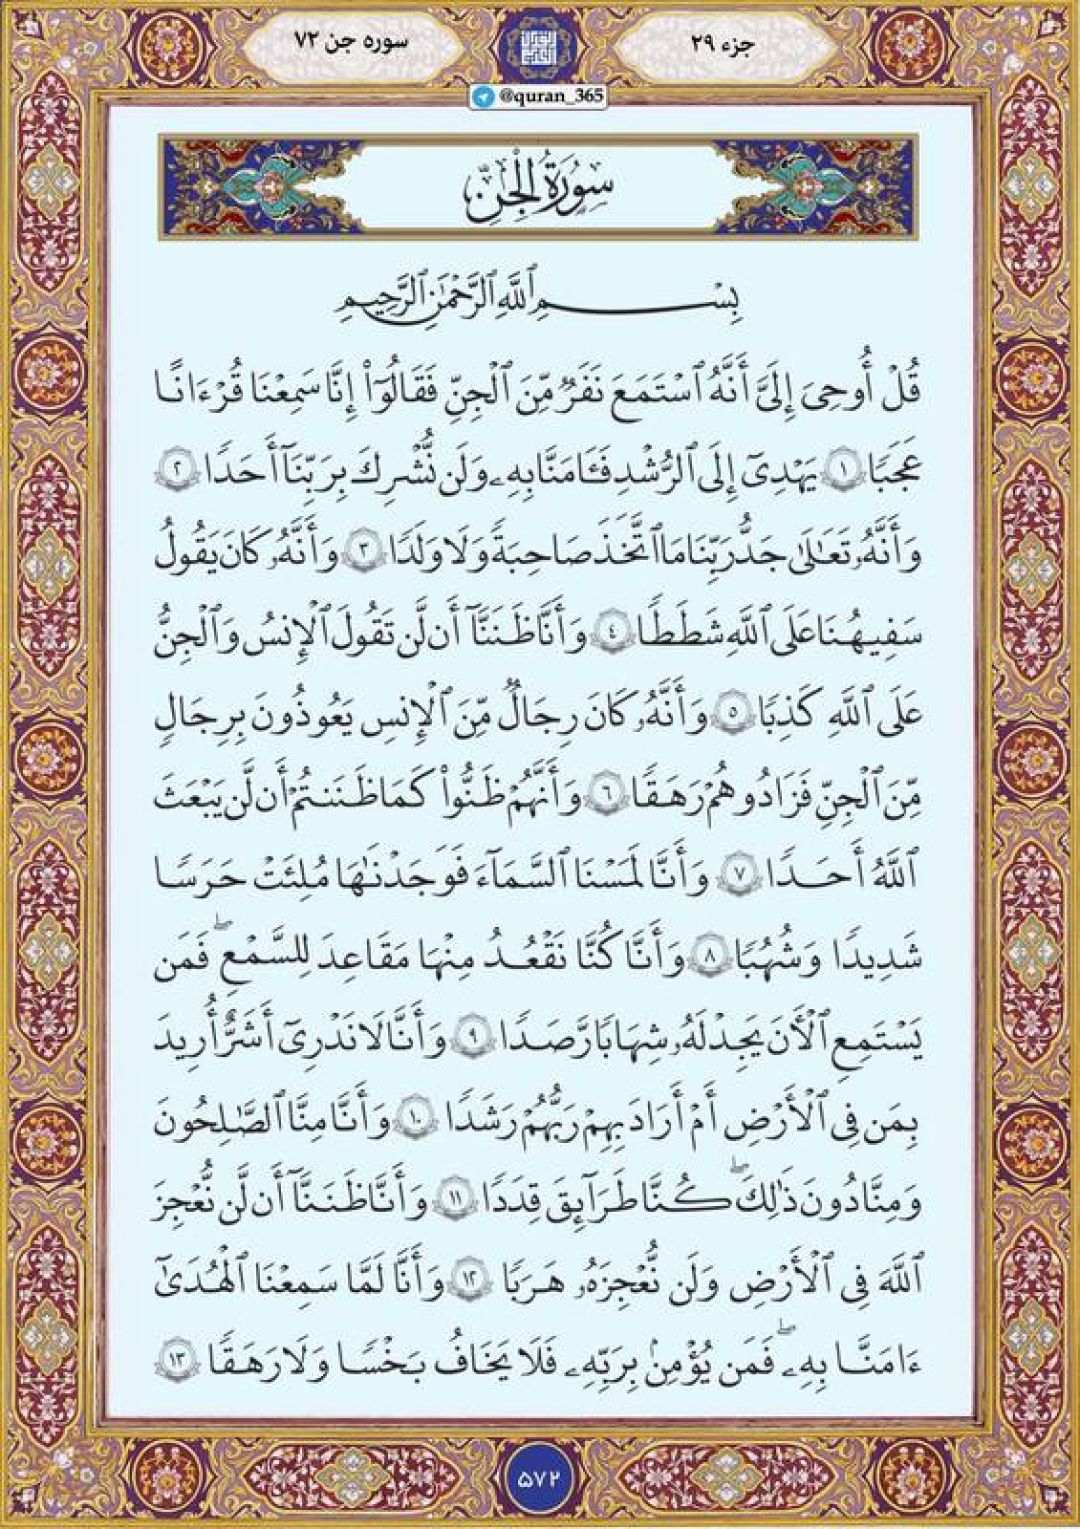 جزء ۲۹
سوره جن ۷۲
@quran_365
سُورَةُ الْجِنِّ
بِسْمِ ٱللَّهِ ٱلرَّحْمَٰنِ ٱلرَّحِيمِ
قُلْ أُوحِىَ إِلَىَّ أَنَّهُ ٱسْتَمَعَ نَفَرٌ مِّنَ ٱلْجِنِّ فَقَالُوٓا۟ إِنَّا سَمِعْنَا قُرْءَانًا
عَجَبًا ١ يَهْدِىٓ إِلَى ٱلرُّشْدِ فَـَٔامَنَّا بِهِۦ وَلَن نُّشْرِكَ بِرَبِّنَآ أَحَدًا ٢
وَأَنَّهُۥ تَعَٰلَىٰ جَدُّ رَبِّنَا مَا ٱتَّخَذَ صَاحِبَةً وَلَا وَلَدًا ٣ وَأَنَّهُۥ كَانَ يَقُولُ
سَفِيهُنَا عَلَى ٱللَّهِ شَطَطًا ٤ وَأَنَّا ظَنَنَّآ أَن لَّن تَقُولَ ٱلْإِنسُ وَٱلْجِنُّ
عَلَى ٱللَّهِ كَذِبًا ٥ وَأَنَّهُۥ كَانَ رِجَالٌ مِّنَ ٱلْإِنسِ يَعُوذُونَ بِرِجَالٍ
مِّنَ ٱلْجِنِّ فَزَادُوهُمْ رَهَقًا ٦ وَأَنَّهُمْ ظَنُّوا۟ كَمَا ظَنَنتُمْ أَن لَّن يَبْعَثَ
ٱللَّهُ أَحَدًا ٧ وَأَنَّا لَمَسْنَا ٱلسَّمَآءَ فَوَجَدْنَٰهَا مُلِئَتْ حَرَسًا
شَدِيدًا وَشُهُبًا ٨ وَأَنَّا كُنَّا نَقْعُدُ مِنْهَا مَقَٰعِدَ لِلسَّمْعِ ۖ فَمَن
يَسْتَمِعِ ٱلْـَٔانَ يَجِدْ لَهُۥ شِهَابًا رَّصَدًا ٩ وَأَنَّا لَا نَدْرِىٓ أَشَرٌّ أُرِيدَ
بِمَن فِى ٱلْأَرْضِ أَمْ أَرَادَ بِهِمْ رَبُّهُمْ رَشَدًا ١٠ وَأَنَّا مِنَّا ٱلصَّٰلِحُونَ
وَمِنَّا دُونَ ذَٰلِكَ ۖ كُنَّا طَرَآئِقَ قِدَدًا ١١ وَأَنَّا ظَنَنَّآ أَن لَّن نُّعْجِزَ
ٱللَّهَ فِى ٱلْأَرْضِ وَلَن نُّعْجِزَهُۥ هَرَبًا ١٢ وَأَنَّا لَمَّا سَمِعْنَا ٱلْهُدَىٰٓ
ءَامَنَّا بِهِۦ ۖ فَمَن يُؤْمِنۢ بِرَبِّهِۦ فَلَا يَخَافُ بَخْسًا وَلَا رَهَقًا ١٣
۵۷۲